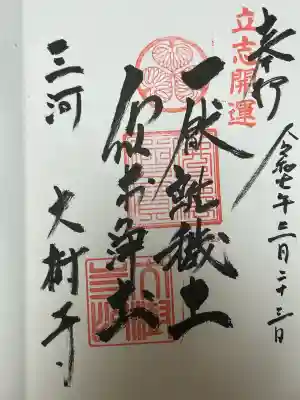 奉拝
立志開運
令和七年三月二十三日
厭離穢土
欣求浄土
三河 大樹寺